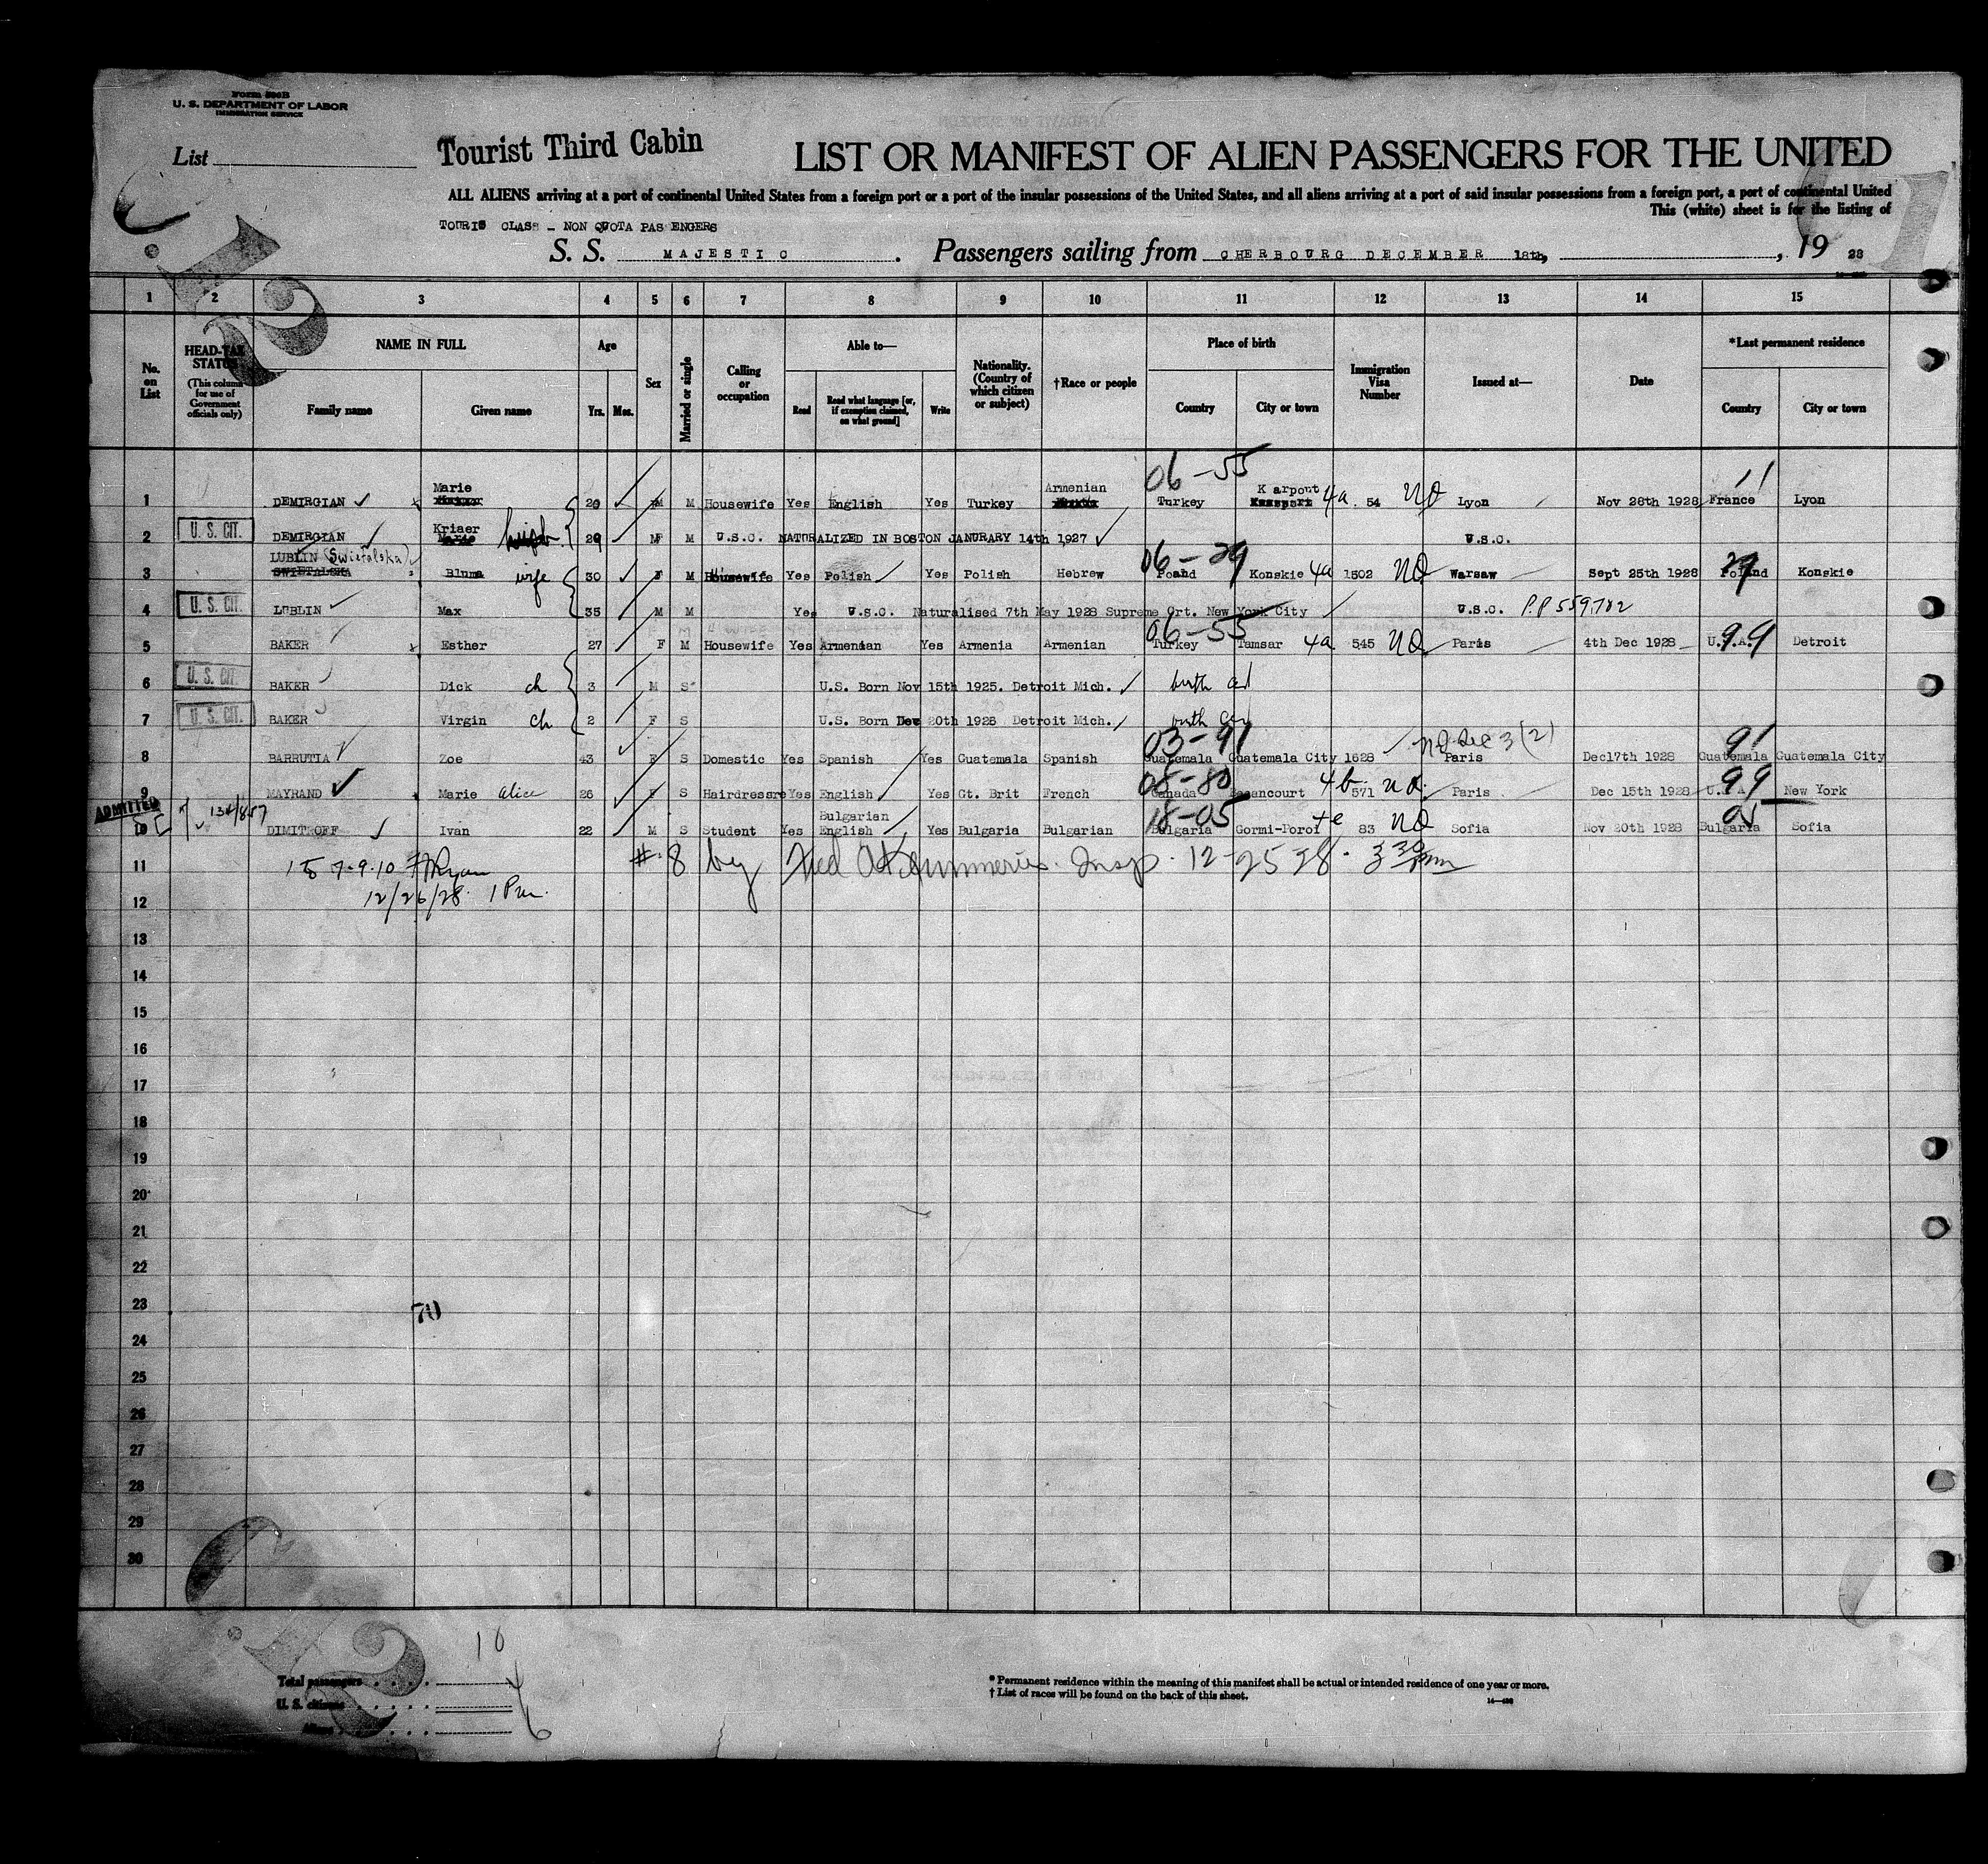 Form 500B
U. S. DEPARTMENT OF LABOR
IMMIGRATION SERVICE
List
Tourist Third Cabin
LIST OR MANIFEST OF ALIEN PASSENGERS FOR THE UNITED
ALL ALIENS arriving at a port of continental United States from a foreign port or a port of the insular possessions of the United States, and all aliens arriving at a port of said insular possessions from a foreign port, a port of continental United
This (white) sheet is for the listing of
TOURIS CLASS - NON QUOTA PAS ENGERS
S. S. MAJESTIC . Passengers sailing from CHERBOURG DECEMBER 18th, , 19 28
1 2 3 4 5 6 7 8 9 10 11 12 13 14 15
No. on List
HEAD-TAX STATUS (This column for use of Government officials only)
NAME IN FULL Family name Given name
Age Yrs. Mos.
Sex
Married or single
Calling or occupation
Able to— Read Read what language [or, if exemption claimed, on what ground] Write
Nationality. (Country of which citizen or subject)
†Race or people
Place of birth Country City or town
Immigration Visa Number
Issued at—
Date
*Last permanent residence Country City or town
Marie Armenian 06-55 K arpout 11
1 DEMIRGIAN 29 M Housewife Yes English Yes Turkey Turkey 4a 54 NQ Lyon Nov 28th 1928 France Lyon
Kriaer
2 U. S. CIT. DEMIRGIAN Marie husb. 29 M M U.S.C. NATURALIZED IN BOSTON JANURARY 14th 1927 U.S.C.
LUBLIN (Swietalska) 06-29 29
3 SWIETALSKA Bluma wife 30 F M Housewife Yes Polish Yes Polish Hebrew Poand Konskie 4a 1502 NQ Warsaw Sept 25th 1928 Poland Konskie
4 U. S. CIT. LUBLIN Max 35 M M Yes U.S.C. Naturalised 7th May 1928 Supreme Crt. New York City U.S.C. P.P 559782
06-55 99
5 BAKER Esther 27 F M Housewife Yes Armenian Yes Armenia Armenian Turkey Tamsar 4a 545 NQ Paris 4th Dec 1928 U.S.A. Detroit
6 U. S. CIT. BAKER Dick ch 3 M S U.S. Born Nov 15th 1925. Detroit Mich. birth
7 U. S. CIT. BAKER Virgin ch 2 F S U.S. Born Dec 20th 1926 Detroit Mich. birth
03-91 NQ Sec 3 (2) 91
8 BARRUTIA Zoe 43 F S Domestic Yes Spanish Yes Guatemala Spanish Guatemala Guatemala City 1628 Paris Dec17th 1928 Guatemala Guatemala City
08-80 99
9 MAYRAND Marie Alice 26 F S Hairdressre Yes English Yes Gt. Brit French Canada 4b 571 NQ Paris Dec 15th 1928 U.S.A. New York
ADMITTED 134/857 Bulgarian 18-05 05
10 DIMITROFF Ivan 22 M S Student Yes English Yes Bulgaria Bulgarian Bulgaria Gormi-Poroi 4e 83 NQ Sofia Nov 20th 1928 Bulgaria Sofia
11 #8 by Insp. 12-25 28. 3 30 pm
12 12/26/28. 1 Pm.
13
14
15
16
17
18
19
20
21
22
23 70
24
25
26
27
28
29
30
10
Total passengers
U. S. citizens 4
Aliens 6
* Permanent residence within the meaning of this manifest shall be actual or intended residence of one year or more.
† List of races will be found on the back of this sheet.